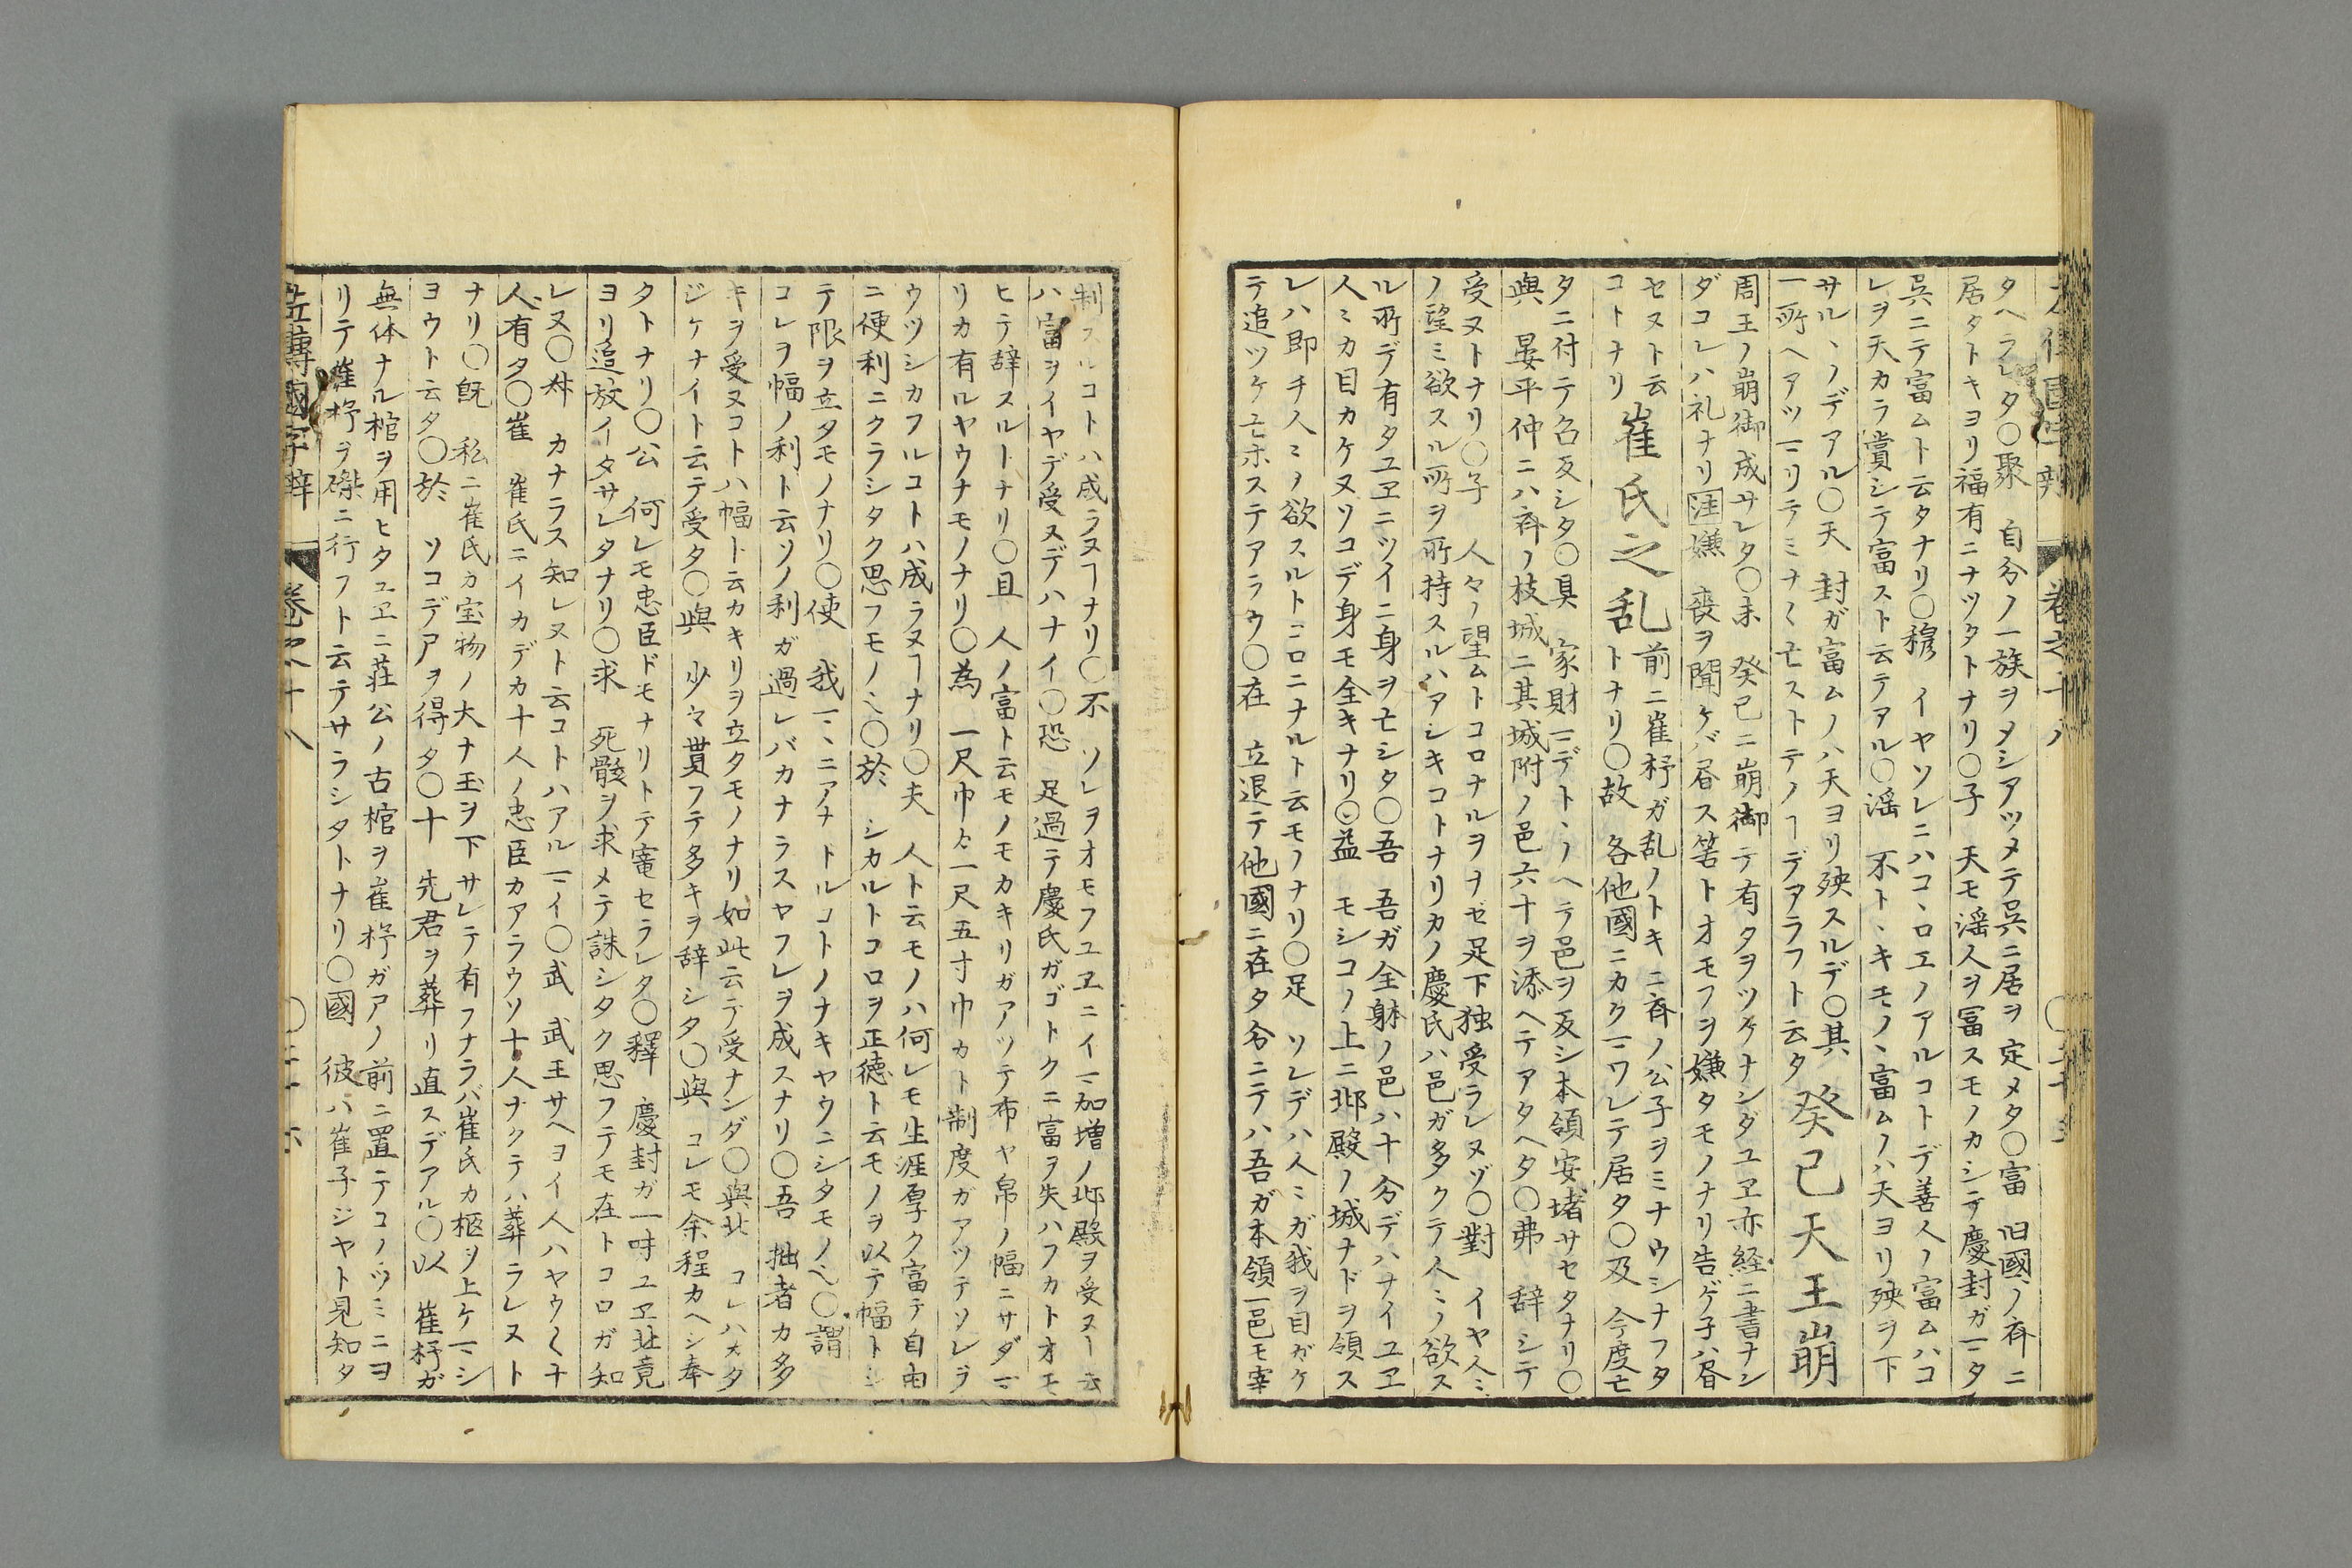 タヘラレタ〇聚 自分ノ一族ヲメシアツメテ呉ニ居ヲ定メタ〇富 旧國ノ斉ニ
居タトキヨリ福有ニナツタトナリ〇子 天モ滛人ヲ冨スモノカシテ慶封ガ一タ
呉ニテ富ムト云タナリ〇穆 イヤソレニハコヽロエノアルコトデ善人ノ富ムハコ
レヲ天カラ賞シテ富スト云テアル〇滛 不トヽキモノヽ富ムノハ天ヨリ殃ヲ下
サルヽノデアル〇天 封ガ富ムノハ天ヨリ殃スルデ〇其
一所ヘアツマリテミナ〱亡ストテノヿデアラフト云タ
癸巳天王崩
周王ノ崩御成サレタ〇未 癸巳ニ崩御テ有タヲツケナンダユヱ亦経ニ書ナン
ダコレハ礼ナリ注嫌 喪ヲ聞ケバ昏ス筈トオモフヲ嫌タモノナリ告ゲ子ハ昏
セヌト云
コトナリ
崔氏之乱
前ニ崔杼ガ乱ノトキニ斉ノ公子ヲミナウシナフタ
トナリ〇故 各他國ニカクマワレテ居タ〇及 今度亡
タニ付テ召反シタ〇具 家財マデトヽノヘテ邑ヲ反シ本領安堵サセタナリ〇
與 晏平仲ニハ斉ノ枝城ニ其城附ノ邑六十ヲ添ヘテアタヘタ〇弗 辞シテ
受ヌトナリ〇子 人々ノ望ムトコロナルヲナゼ足下独受ラレヌゾ〇對 イヤ人ミ
ノ望ミ欲スル所ヲ所持スルハアシキコトナリカノ慶氏ハ邑ガ多クテ人ミノ欲ス
ル所デ有タユヱニツイニ身ヲ亡シタ〇吾 吾ガ全躰ノ邑ハ十分デハナイユヱ
人ミカ目カケヌソコデ身モ全キナリ〇益 モシコノ上ニ邶殿ノ城ナドヲ領ス
レハ即チ人ミノ欲スルトコロニナルト云モノナリ〇足 ソレデハ人ミガ我ヲ目ガケ
テ追ツケ亡ホステアラウ〇在 立退テ他國ニ在タ分ニテハ吾ガ本領一邑モ宰
制スルコトハ成ラヌヿナリ〇不 ソレヲオモフユヱニイマ加増ノ邶殿ヲ受ヌヿ云
ハ富ヲイヤデ受ヌデハナイ〇恐 足過テ慶氏ガゴトクニ富ヲ失ハフカトオモ
ヒテ辞スルトナリ〇且 人ノ富ト云モノモカキリガアツテ布ヤ帛ノ幅ニサダマ
リカ有ルヤウナモノナリ〇為 一尺巾ト一尺五寸巾カト制度ガアツテソレヲ
ウツシカフルコトハ成ラヌヿナリ〇夫 人ト云モノハ何レモ生涯厚ク富テ自由
ニ便利ニクラシタク思フモノ也〇於 シカルトコロヲ正徳ト云モノヲ以テ幅トシ
テ限ヲ立タモノナリ〇使 我マヽニアナトルコトノナキヤウニシタモノ也〇謂
コレヲ幅ノ利ト云ソノ利ガ過レバカナラスヤフレヲ成スナリ〇吾 拙者カ多
キヲ受ヌコトハ幅ト云カキリヲ立タモノナリ如此云テ受ナンダ〇與北 コレハ又タ
ジケナイト云テ受タ〇與 少々貰フテ多キヲ辞シタ〇與 コレモ余程カヘシ奉
タトナリ〇公 何レモ忠臣ドモナリトテ寵セラレタ〇釋 慶封ガ一味ユヱ北竟
ヨリ追放イタサレタナリ〇求 死骸ヲ求メテ誅シタク思フテモ在トコロガ知
レヌ〇叔 カナラス知レヌト云コトハアルマイ〇武 武王サヘヨイ人ハヤウ〱ナ
人有タ〇崔 崔氏ニイカデカ十人ノ忠臣カアラウソ十人ナクテハ葬ラレヌト
ナリ〇既 私ニ崔氏カ宝物ノ大ナ玉ヲ下サレテ有フナラバ崔氏カ柩ヲ上ケマシ
ヨウト云タ〇於 ソコデアヲ得タ〇十 先君ヲ葬リ直スデアル〇以 崔杼ガ
無体ナル棺ヲ用ヒタユヱニ荘公ノ古棺ヲ崔杼ガアノ前ニ置テコノツミニヨ
リテ崔杼ヲ磔ニ行フト云テサラシタトナリ〇國 彼ハ崔子ジヤト見知タ
左傳國字辯 卷之十八